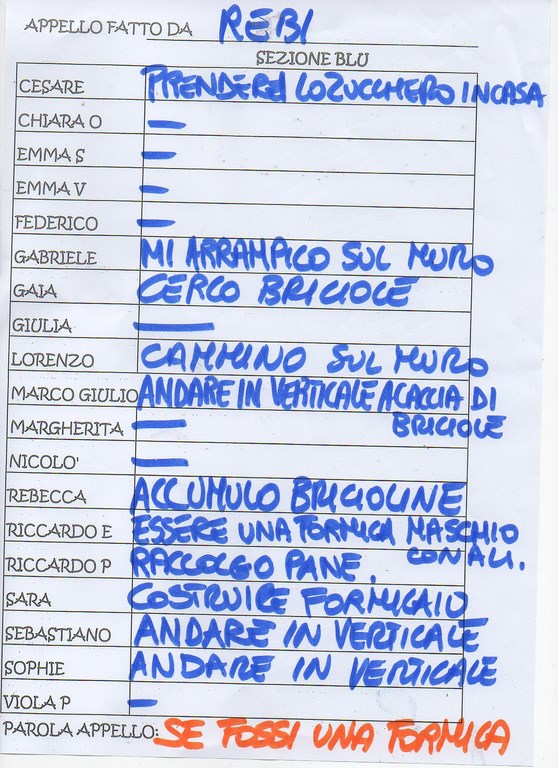 APPELLO FATTO DA REBI
SEZIONE BLU
CESARE PRENDEREI LO ZUCCHERO IN CASA
CHIARA O —
EMMA S —
EMMA V —
FEDERICO —
GABRIELE MI ARRAMPICO SUL MURO
GAIA CERCO BRICIOLE
GIULIA —
LORENZO CAMMINO SUL MURO
MARCO GIULIO ANDARE IN VERTICALE A CACCIA DI
BRICIOLE
MARGHERITA —
NICOLO' —
REBECCA ACCUMULO BRICIOLINE
RICCARDO E ESSERE UNA FORMICA MASCHIO
CON ALI.
RICCARDO P RACCOLGO PANE.
SARA COSTRUIRE FORMICAIO
SEBASTIANO ANDARE IN VERTICALE
SOPHIE ANDARE IN VERTICALE
VIOLA P —
PAROLA APPELLO: SE FOSSI UNA FORMICA